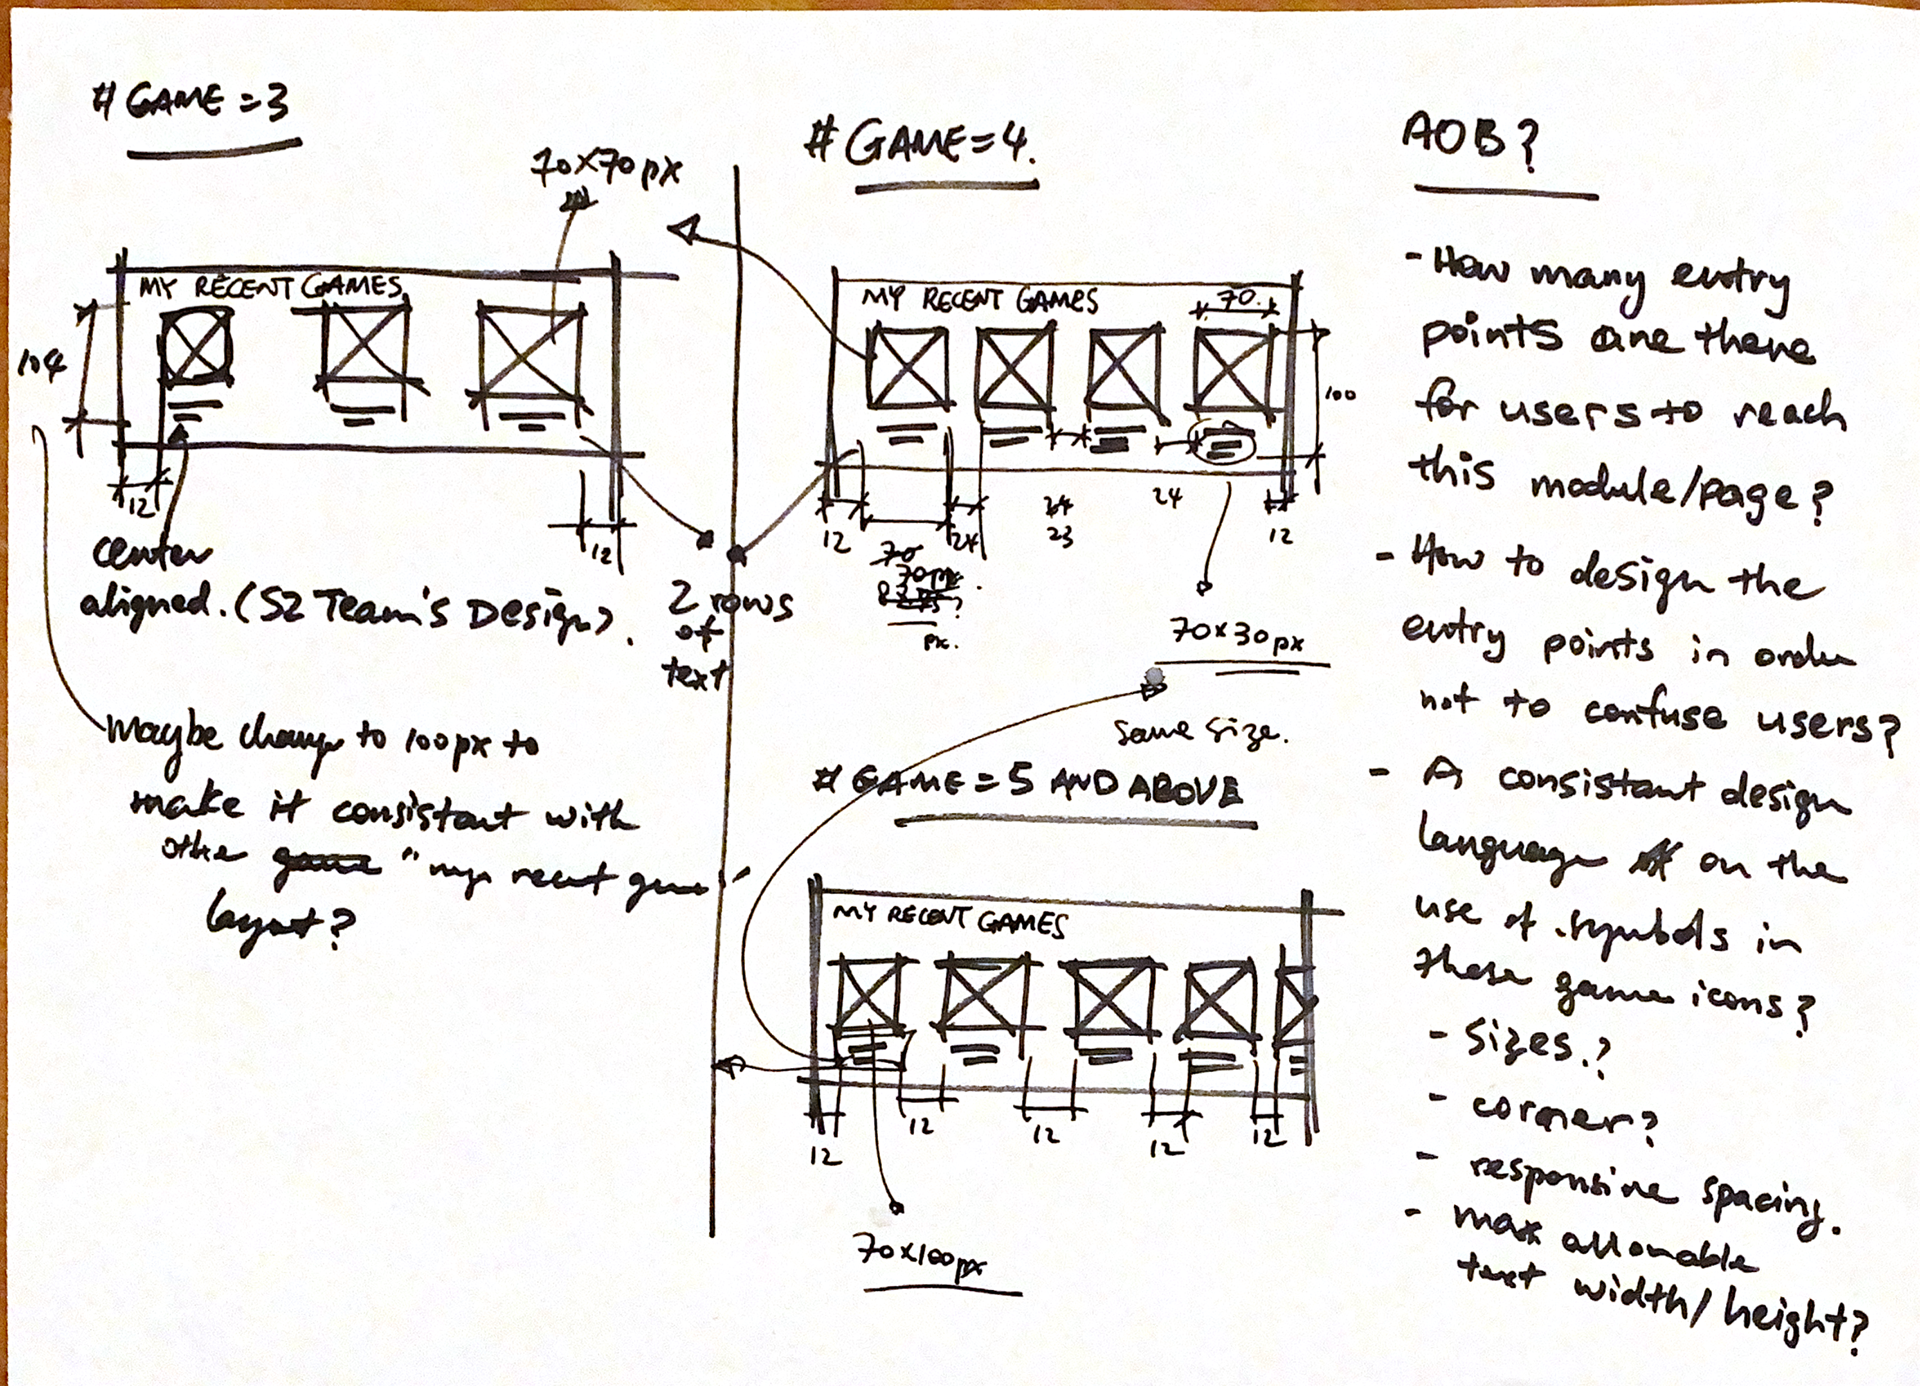 # GAME = 3
70×70px
MY RECENT GAMES
104
12
12
center
aligned. (S2 Team's Design).
2 rows
of
text
maybe change to 100px to
make it consistant with
other game "my recent game"
layout?
# GAME = 4.
MY RECENT GAMES
70
100
12
24
24
23
24
12
70
70px
px.
70×30px
same size.
# GAME = 5 AND ABOVE
MY RECENT GAMES
12
12
12
12
12
70×100px
AOB?
- How many entry
points are there
for users to reach
this module/page?
- How to design the
entry points in order
not to confuse users?
- A consistant design
language on the
use of symbols in
these game icons?
- Sizes.?
- corner?
- responsive spacing.
- max allowable
text width/height?